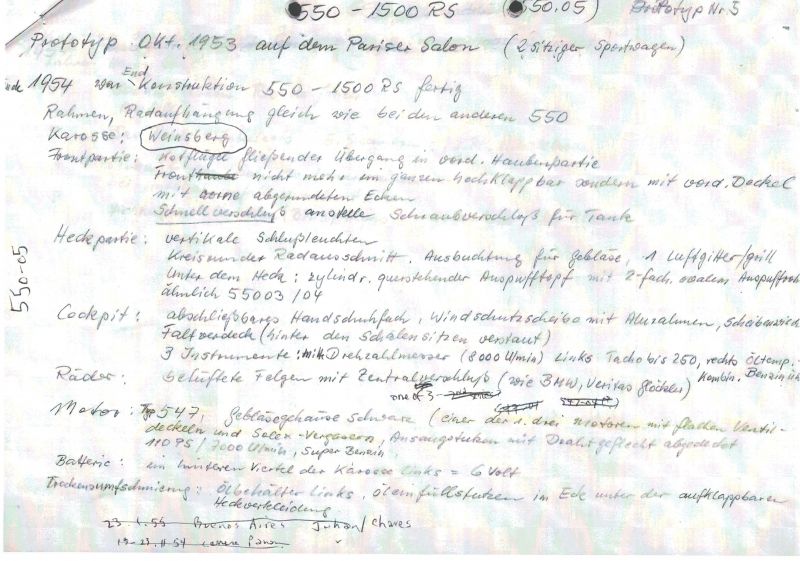 550 - 1500 RS (550.05) Prototyp Nr 5
Prototyp Okt. 1953 auf dem Pariser Salon (2 sitziger Sportwagen)
Ende 1954 war End Konstruktion 550 - 1500 RS fertig
Rahmen, Radaufhängung gleich wie bei den anderen 550
Karosse: Weinsberg
Frontpartie: Kotflügel fließender Übergang in vord. Haubenpartie
Front nicht mehr im ganzen hochklappbar sondern mit vord. Deckel
mit vorne abgerundeten Ecken
Schnellverschluß anstelle Schraubverschluß für Tank
Heckpartie: vertikale Schlußleuchten
Kreisrunder Radausschnitt. Ausbuchtung für Gebläse, 1 Luftgitter/grill
Unter dem Heck: zylindr. querstehender Auspufftopf mit 2-fach. ovalem Auspuffroh
ähnlich 55003/04
550-05
Cockpit: abschließbares Handschuhfach, Windschutzscheibe mit Alurahmen, Scheibenwisch
Faltverdeck (hinter den Schalensitzen verstaut)
3 Instrumente: mitt. Drehzahlmesser (8000 U/min) links Tacho bis 250, rechts Öltemp.
Kombin. Benzin
Räder: belüftete Felgen mit Zentralverschluß (wie BMW, Veritas Glöckler)
one of 3
Motor: Typ 547, Gebläsegehäuse Schwarz (einer der 1. drei Motoren mit flachen Ventil-
deckeln und Solex-Vergasern, Ansaugstutzen mit Drahtgeflecht abgedeckt
110 PS/7000 U/min, Super Benzin
Batterie: im hinteren Viertel der Karosse links = 6 Volt
Trockensumpfschmierung: Ölbehälter links, Öleinfüllstutzen im Eck unter der aufklappbaren
Heckverkleidung
23.1.55 Buenos Aires Juhan/Chaves
19-23.11.54 Carrera Panam.